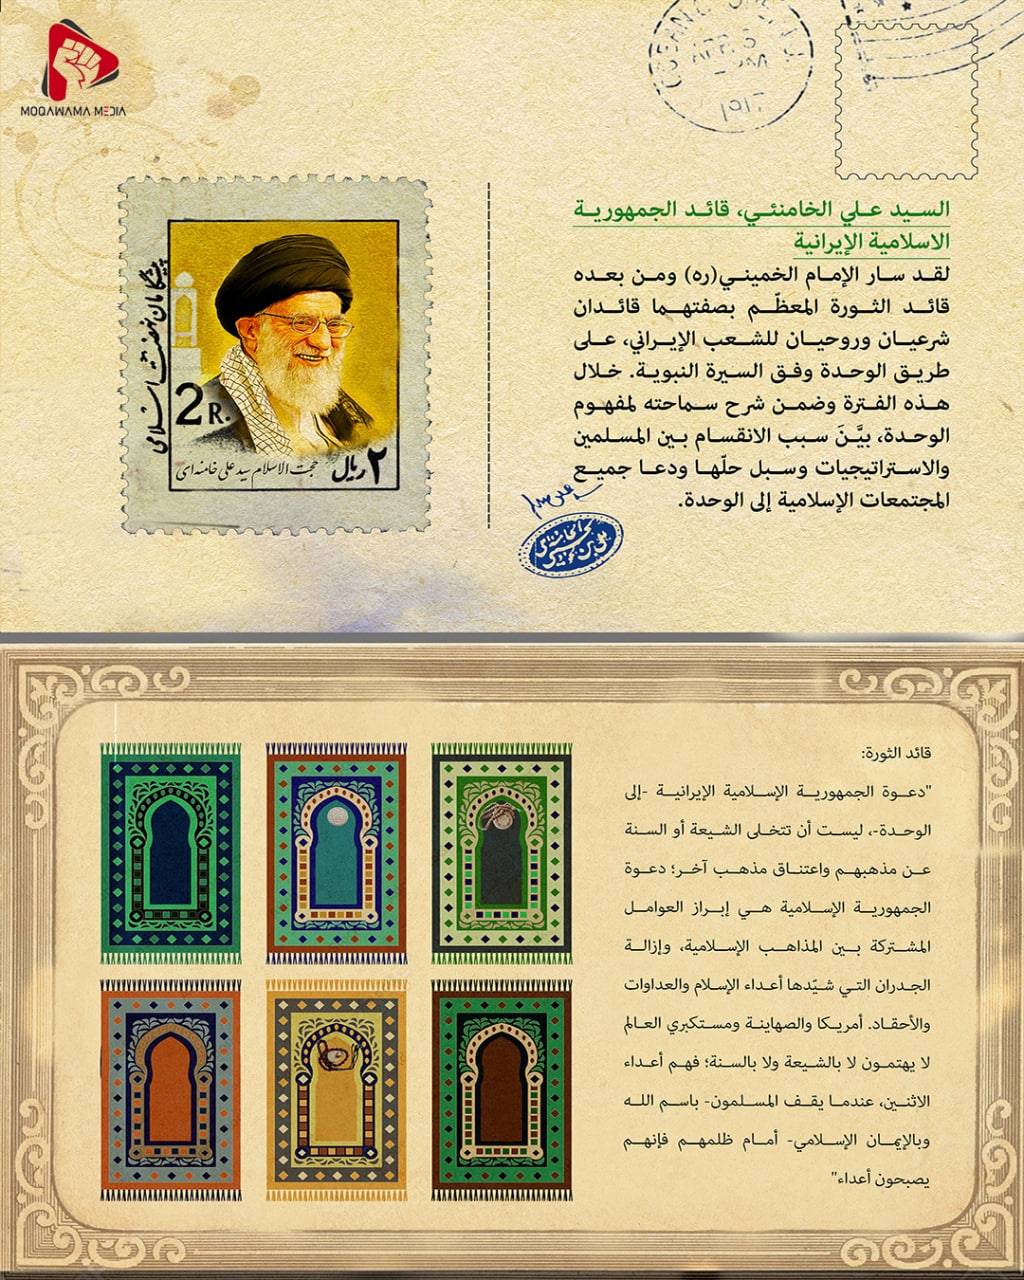 MOQAWAMA MEDIA
1917
پیشگامان نهضت اسلامی
2 R.
۲ ریال
حجت الاسلام سید علی خامنه‌ای
السيد علي الخامنئي، قائد الجمهورية
الاسلامية الإيرانية
لقد سار الإمام الخميني(ره) ومن بعده
قائد الثورة المعظّم بصفتهما قائدان
شرعيان وروحيان للشعب الإيراني، على
طريق الوحدة وفق السيرة النبوية. خلال
هذه الفترة وضمن شرح سماحته لمفهوم
الوحدة، بيَّنَ سبب الانقسام بين المسلمين
والاستراتيجيات وسبل حلّها ودعا جميع
المجتمعات الإسلامية إلى الوحدة.
قائد الثورة:
"دعوة الجمهورية الإسلامية الإيرانية -إلى
الوحدة-، ليست أن تتخلى الشيعة أو السنة
عن مذهبهم واعتناق مذهب آخر؛ دعوة
الجمهورية الإسلامية هي إبراز العوامل
المشتركة بين المذاهب الإسلامية، وإزالة
الجدران التي شيّدها أعداء الإسلام والعداوات
والأحقاد. أمريكا والصهاينة ومستكبري العالم
لا يهتمون لا بالشيعة ولا بالسنة؛ فهم أعداء
الاثنين، عندما يقف المسلمون- باسم الله
وبالإيمان الإسلامي- أمام ظلمهم فإنهم
يصبحون أعداء"